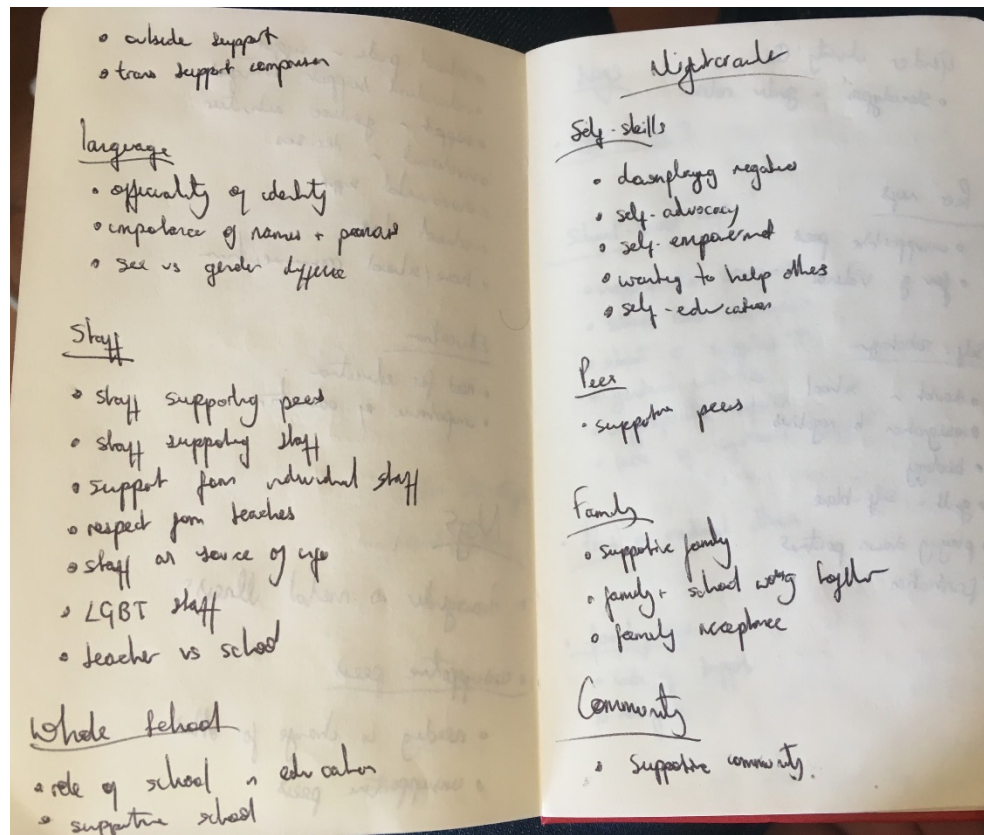 • outside support
• trans support comparison
language
• officiality of identity
• importance of names + pronouns
• sex vs gender difference
Staff
• staff supporting peers
• staff supporting staff
• support from individual staff
• respect from teachers
• staff as source of info
• LGBT staff
• teacher vs school
Whole School
• role of school in education
• supportive school
Nightcrawler
Self-skills
• downplaying negatives
• self-advocacy
• self-empowerment
• wanting to help others
• self-education
Peer
• supportive peers
Family
• supportive family
• family + school working together
• family acceptance
Community
• Supportive community.